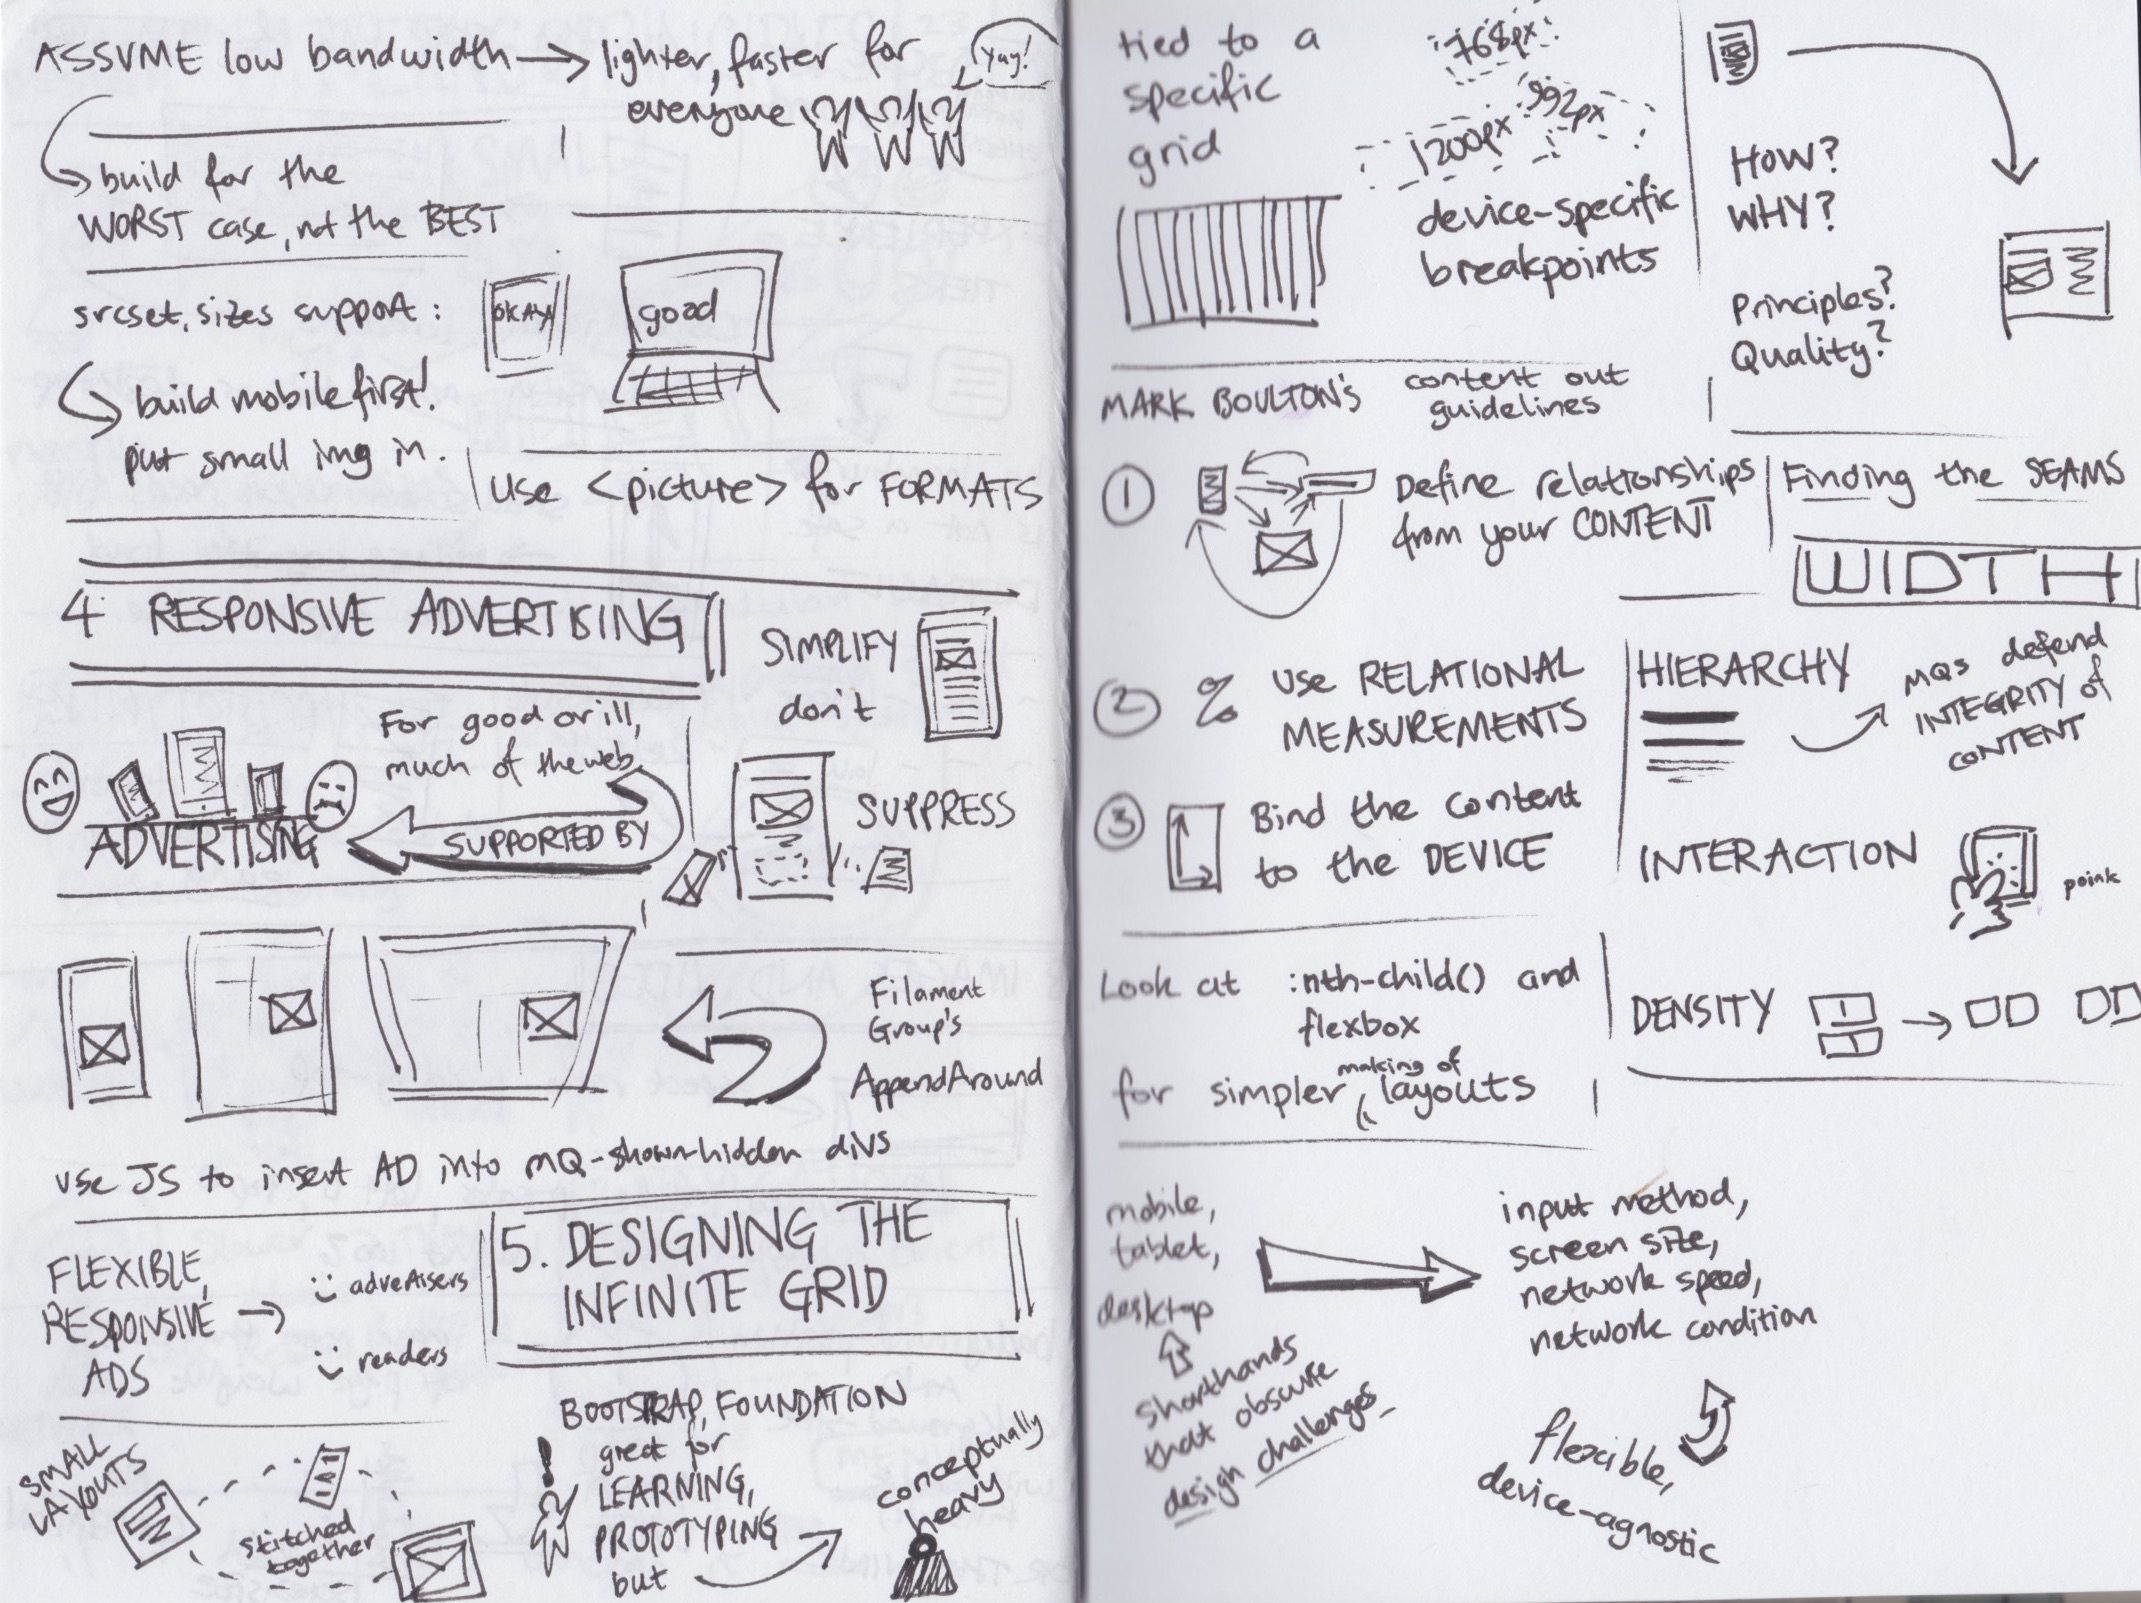 ASSUME low bandwidth → lighter, faster for
everyone
Yay!
build for the
WORST case, not the BEST
srcset, sizes support:
OKAY
good
build mobile first!
put small img in.
Use <picture> for FORMATS
4 RESPONSIVE ADVERTISING
SIMPLIFY
don't
SUPPRESS
For good or ill,
much of the web
SUPPORTED BY
ADVERTISING
Filament
Group's
AppendAround
use JS to insert AD into MQ-shown-hidden divs
FLEXIBLE,
RESPONSIVE →
ADS
advertisers
readers
5. DESIGNING THE
INFINITE GRID
SMALL
LAYOUTS
stitched
together
BOOTSTRAP, FOUNDATION
great for
LEARNING,
PROTOTYPING
but
conceptually
heavy
tied to a
specific
grid
768px
992px
1200px
device-specific
breakpoints
HOW?
WHY?
Principles?
Quality?
MARK BOULTON'S content out
guidelines
1 Define relationships
from your CONTENT
2 % use RELATIONAL
MEASUREMENTS
3 Bind the content
to the DEVICE
Finding the SEAMS
WIDTH
HIERARCHY
MQs defend
INTEGRITY of
CONTENT
INTERACTION
poink
DENSITY
Look at :nth-child() and
flexbox
for simpler making of layouts
mobile,
tablet,
desktop
shorthands
that obscure
design challenges
input method,
screen size,
network speed,
network condition
flexible,
device-agnostic